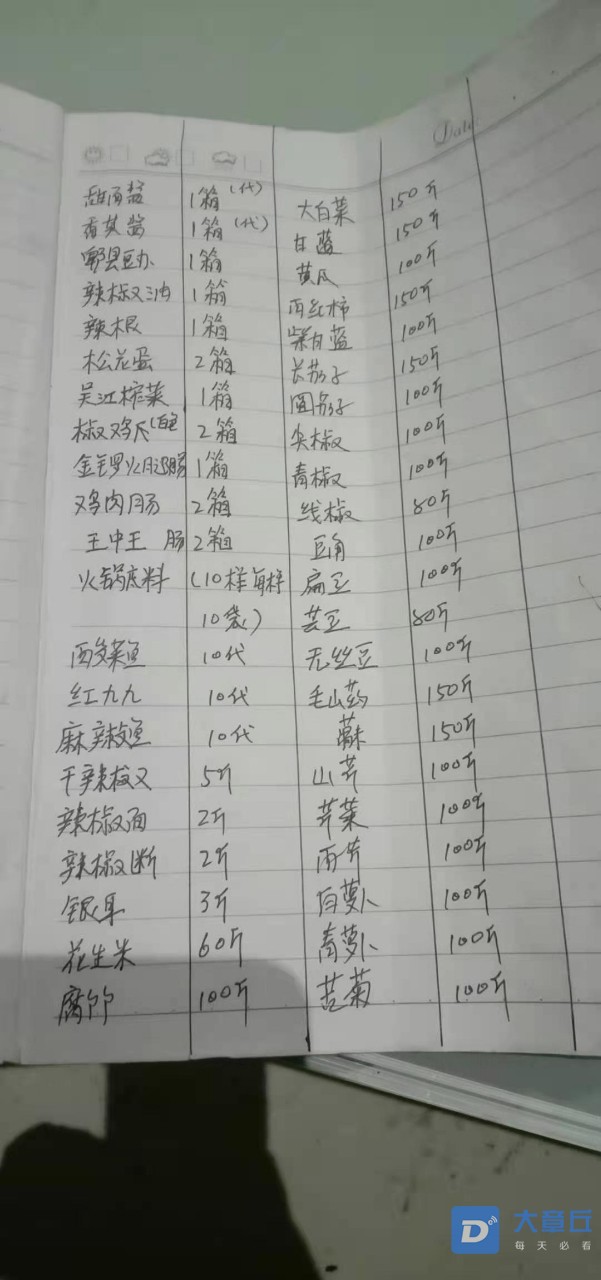 Date
甜面酱 1箱(代) 大白菜 150斤
香其酱 1箱(代) 甘蓝 150斤
郫县豆办 1箱 黄瓜 100斤
辣椒油 1箱 西红柿 150斤
辣根 1箱 紫甘蓝 100斤
松花蛋 2箱 长茄子 150斤
吴江榨菜 1箱 圆茄子 100斤
椒鸡 2箱 尖椒 100斤
金锣火腿肠 1箱 青椒 100斤
鸡肉肠 2箱 线椒 80斤
王中王 肠 2箱 豆角 100斤
火锅底料 (10样每样 扁豆 100斤
10袋) 芸豆 80斤
酸菜鱼 10代 无丝豆 100斤
红九九 10代 毛山药 150斤
麻辣鱼 10代 150斤
干辣椒 5斤 山芹 100斤
辣椒面 2斤 芹菜 100斤
辣椒断 2斤 西芹 100斤
银耳 3斤 白萝卜 100斤
花生米 60斤 青萝卜 100斤
腐竹 100斤 苦菊 100斤
大章丘
每天必看